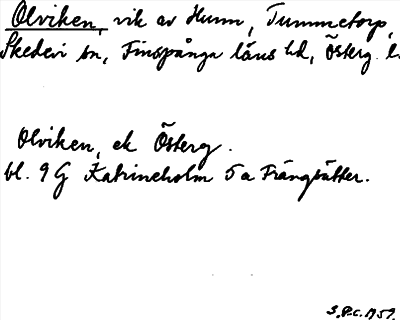 Olviken, vik av Hunn, Tummetorp,
Skedevi sn, Finspånga läns hd, Österg. l.
Olviken, ek Österg.
bl. 9 G Katrineholm 5 a Frängsätter.
S.P.C. 1959.